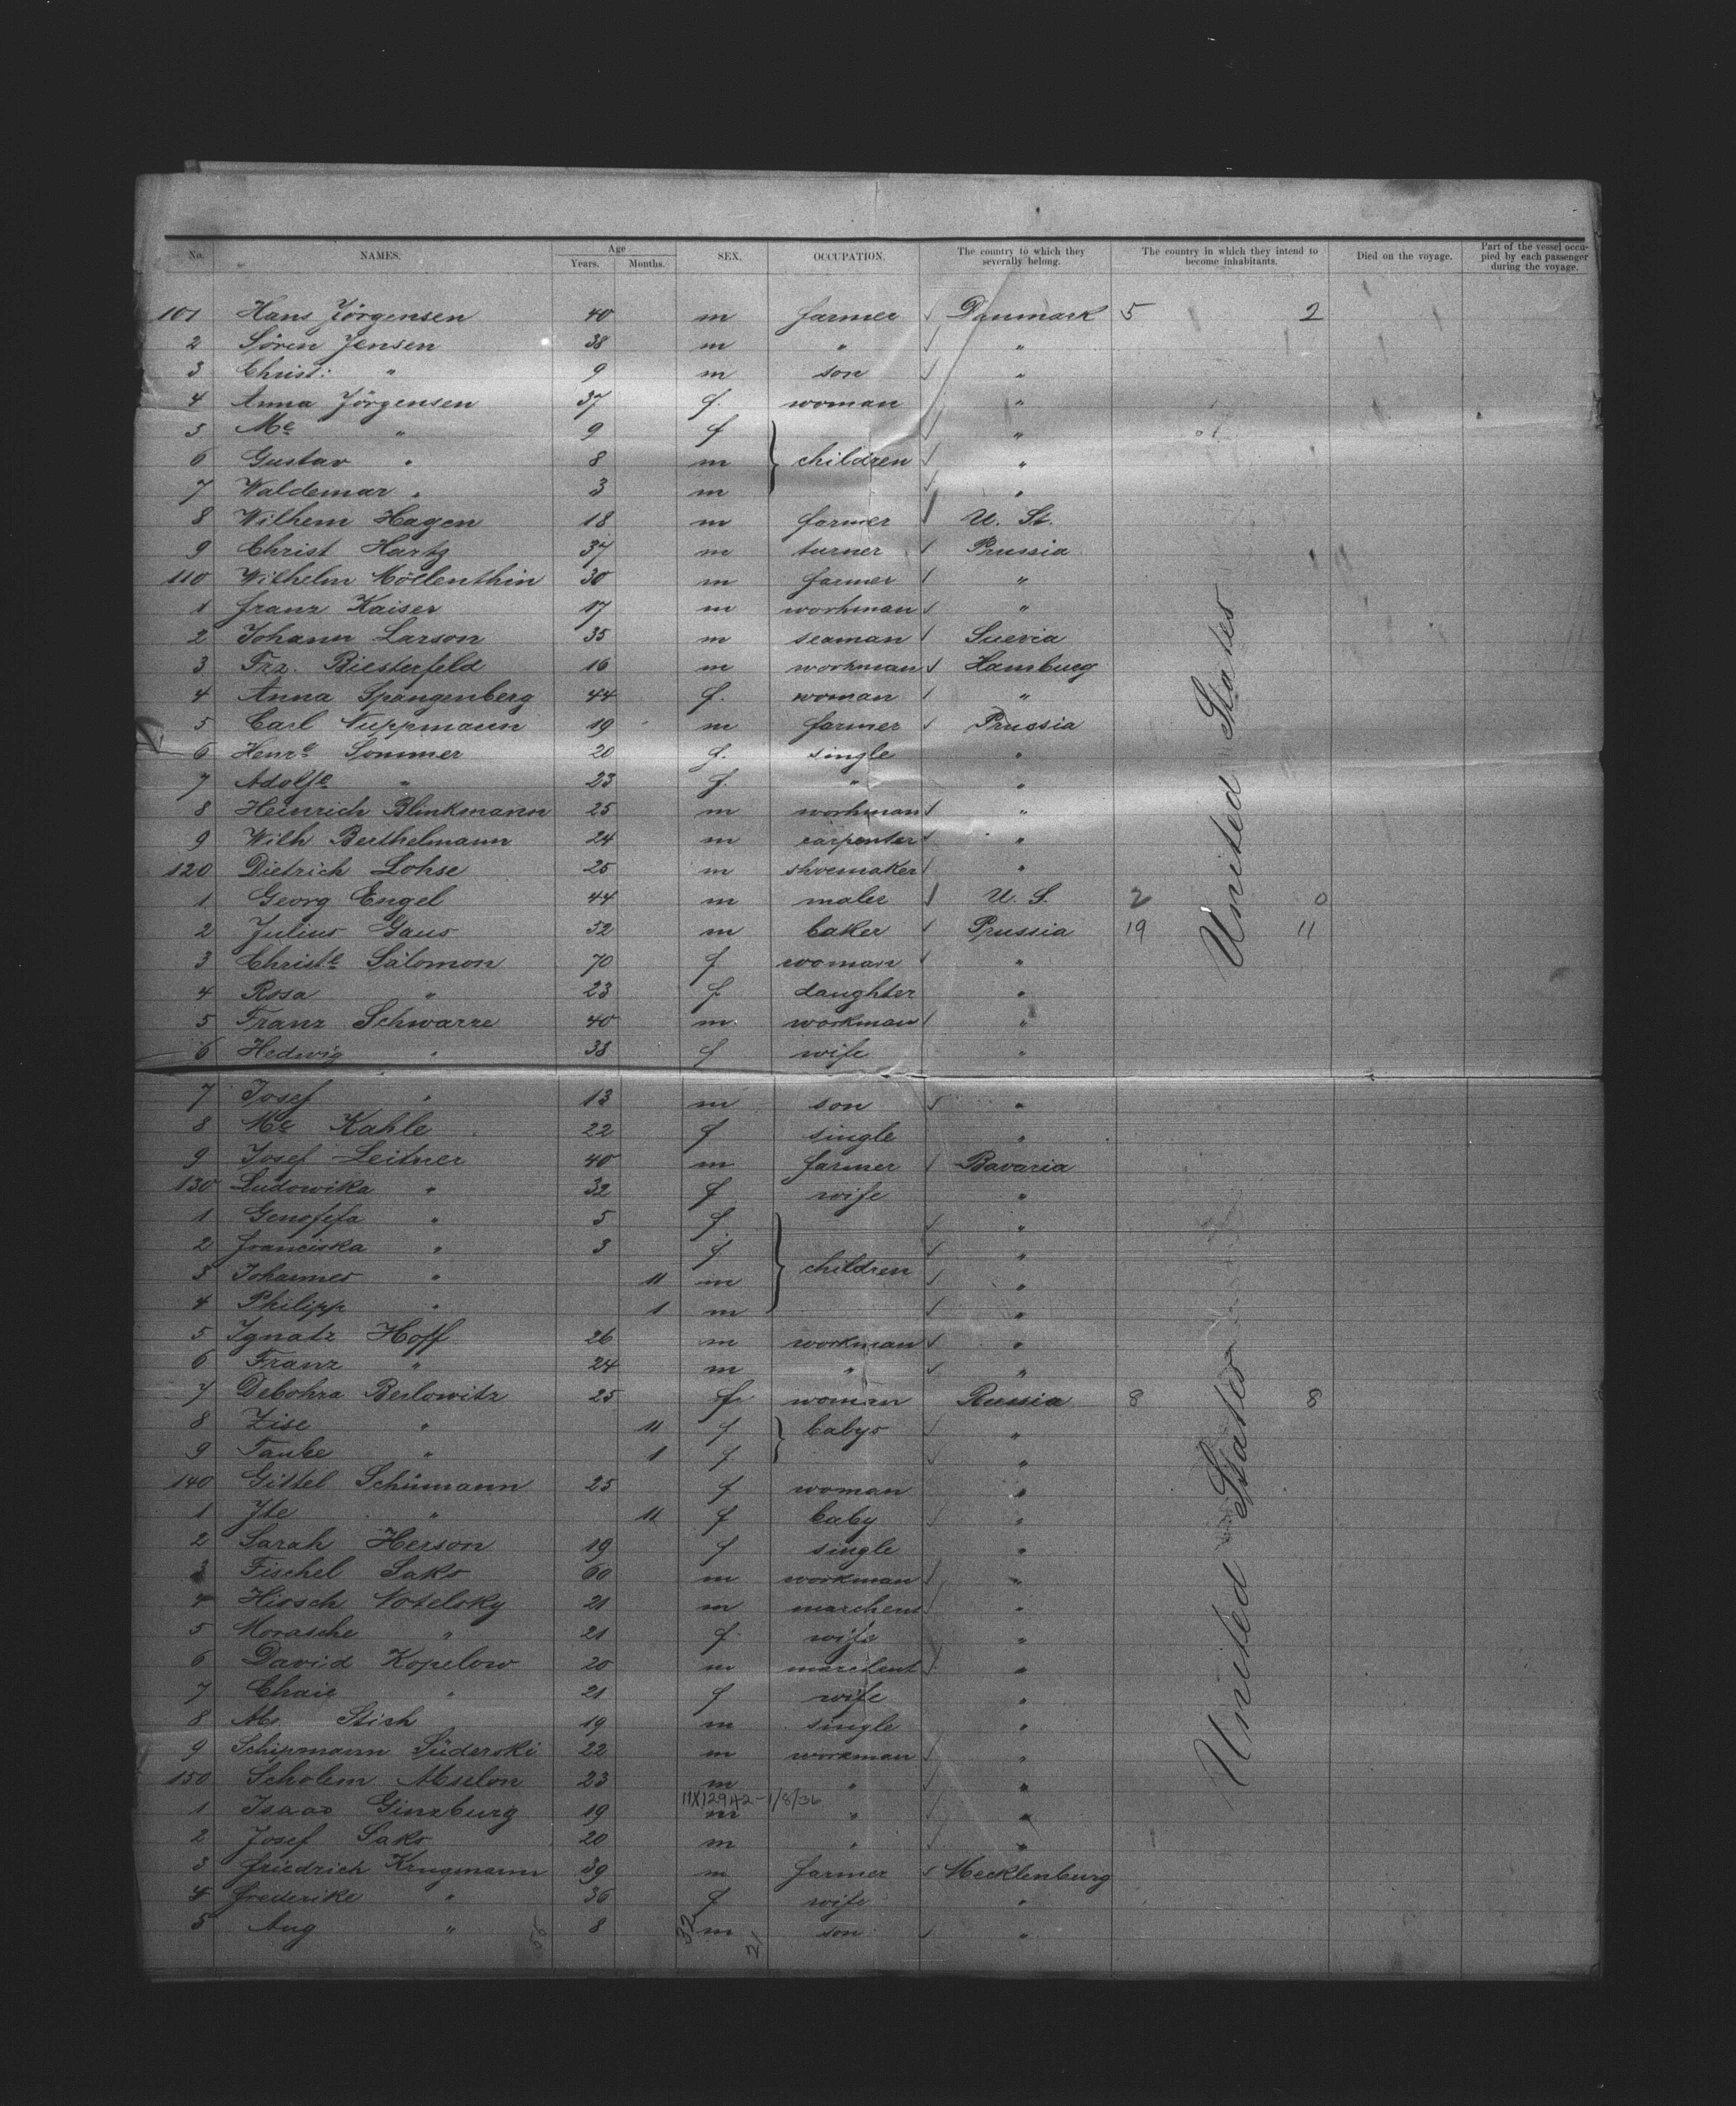 No. NAMES. Age Years. Months. SEX. OCCUPATION. The country to which they severally belong. The country in which they intend to become inhabitants. Died on the voyage. Part of the vessel occupied by each passenger during the voyage.
101 Hans Jörgensen 40 m farmer Danmark 5 2
2 Sören Jensen 38 m " "
3 Christ: " 9 m son "
4 Anna Jörgensen 37 f. woman "
5 Me " 9 f "
6 Gustav " 8 m children "
7 Waldemar " 3 m "
8 Wilhem Hagen 18 m farmer U. St.
9 Christ Hartz 37 m turner Prussia
110 Wilhelm Möllenthin 30 m farmer "
1 Franz Kaiser 17 m workman "
2 Johann Larson 35 m seaman Suevia
3 Frz. Biesterfeld 16 m workman Hamburg
4 Anna Spangenberg 44 f. woman "
5 Carl Nuppmann 19 m farmer Prussia
6 Henre Sommer 20 f. single "
7 Adolfe " 23 f. " "
8 Heinrich Blinkmann 25 m workman "
9 Wilh Berthelmann 24 m carpenter "
120 Dietrich Lohse 25 m shoemaker "
1 Georg Engel 44 m maler U. S. 2 0
2 Julius Gaus 52 m baker Prussia 19 11
3 Christe Salomon 70 f woman "
4 Rosa " 23 f daughter "
5 Franz Schwarze 40 m workman "
6 Hedwig " 38 f wife "
7 Josef " 13 m son "
8 Me Kahle 22 f single "
9 Josef Leitner 40 m farmer Bavaria
130 Ludowika " 32 f wife "
1 Genofefa " 5 f "
2 Franciska " 3 f children "
3 Johannes " 11 m "
4 Philipp " 1 m "
5 Ignatz Hoff 26 m workman "
6 Franz " 24 m " "
7 Debohra Berlowitz 25 f woman Russia 8 8
8 Zise " 11 f babys "
9 Taube " 1 f "
140 Gittel Schümann 25 f woman "
1 Jte " 11 f baby "
2 Sarah Herson 19 f single "
3 Fischel Saks 60 m workman "
4 Hirsch Notelsky 21 m marchent "
5 Morasche " 21 f wife "
6 David Kopelow 20 m marchent "
7 Chaie " 21 f wife "
8 Stich 19 m single "
9 Schipmann Süderski 22 m workman "
150 Scholem Abselon 23 m " "
11X12942-1/8/36
1 Isaac Ginzburg 19 m " "
2 Josef Saks 20 m " "
3 Friedrich Krugmann 39 m farmer Mecklenburg
4 Frederike " 36 f wife "
5 Aug " 55 8 32 m 21 son "
United States
United States